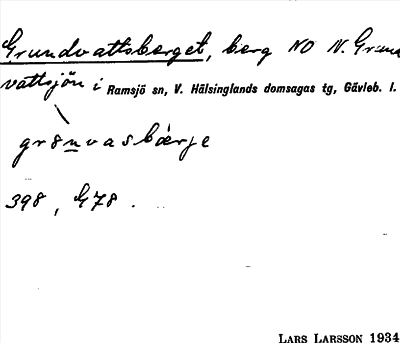 Grundvattsberget, berg NO N. Grund
vattsjön i Ramsjö sn, V. Hälsinglands domsagas tg, Gävleb. l.
gr8nvasbärje
398, G78.
LARS LARSSON 1934